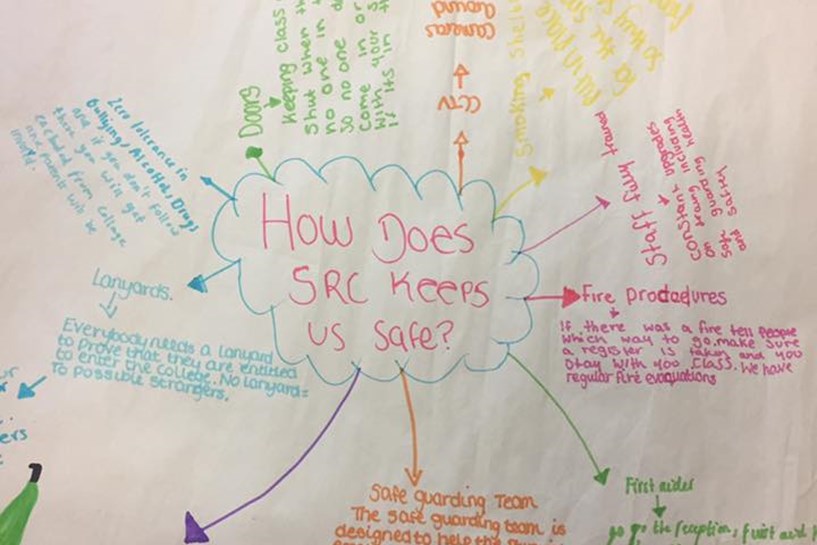 How Does
SRC Keeps
us safe?
Doors
Keeping class
Shut when th
no one in t
So no one d
Come in or
With your s
if its in t
Cameras
around
CCTV
Smoking Shel
All in place
for the
so they
Staff fully trained
constant upgrades
on traing including
safe guarding health
and Safety
Fire procdedures
If there was a fire tell people
which way to go, make sure
a register is taken and you
stay with yoo class. We have
regular fire evaquations
First aider
go go the reception, furist aid
Safe guarding Team
The safe guarding team is
designed to help the
Lanyards.
Everybody needs a lanyard
to prove that they are entitled
to enter the college. No lanyard =
to possible strangers.
Zero tolerance in
bullying, Alcohol, Drugs
and if you don't follow
there you will get
excluded from college
and parents will be
invold.
ur
ers